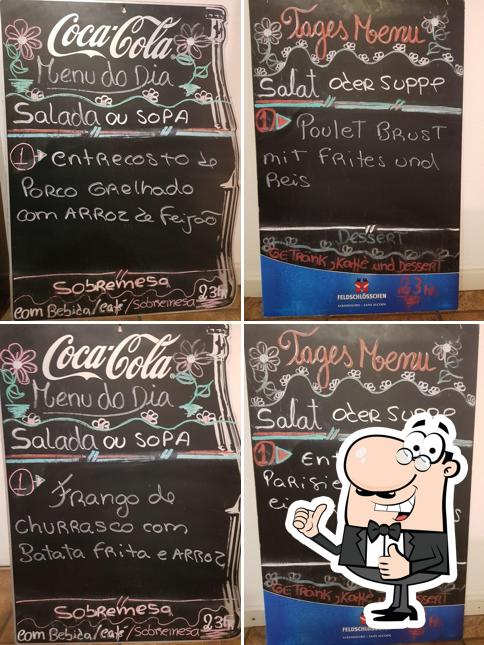 Coca-Cola
Menu do Dia
Salada ou SOPA
1 entrecosto de
Porco Grelhado
com ARROZ de Feijoo
Sobremesa
com Bebida/café/Sobremesa 23fr
Tages Menu
Salat oder Suppe
1 Poulet Brust
mit Frites und
Reis
Dessert
Getränk, Kaffe und Dessert
23 fr.
FELDSCHLÖSSCHEN
Coca-Cola
Menu do Dia
Salada ou SOPA
1 Frango de
churrasco com
Batata frita e ARROZ
Sobremesa
com Bebida/café/Sobremesa 23fr
Tages Menu
Salat oder Suppe
1
Getränk, Kaffe